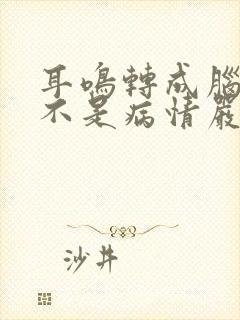 耳鳴轉成腦
不是病情嚴
沙井